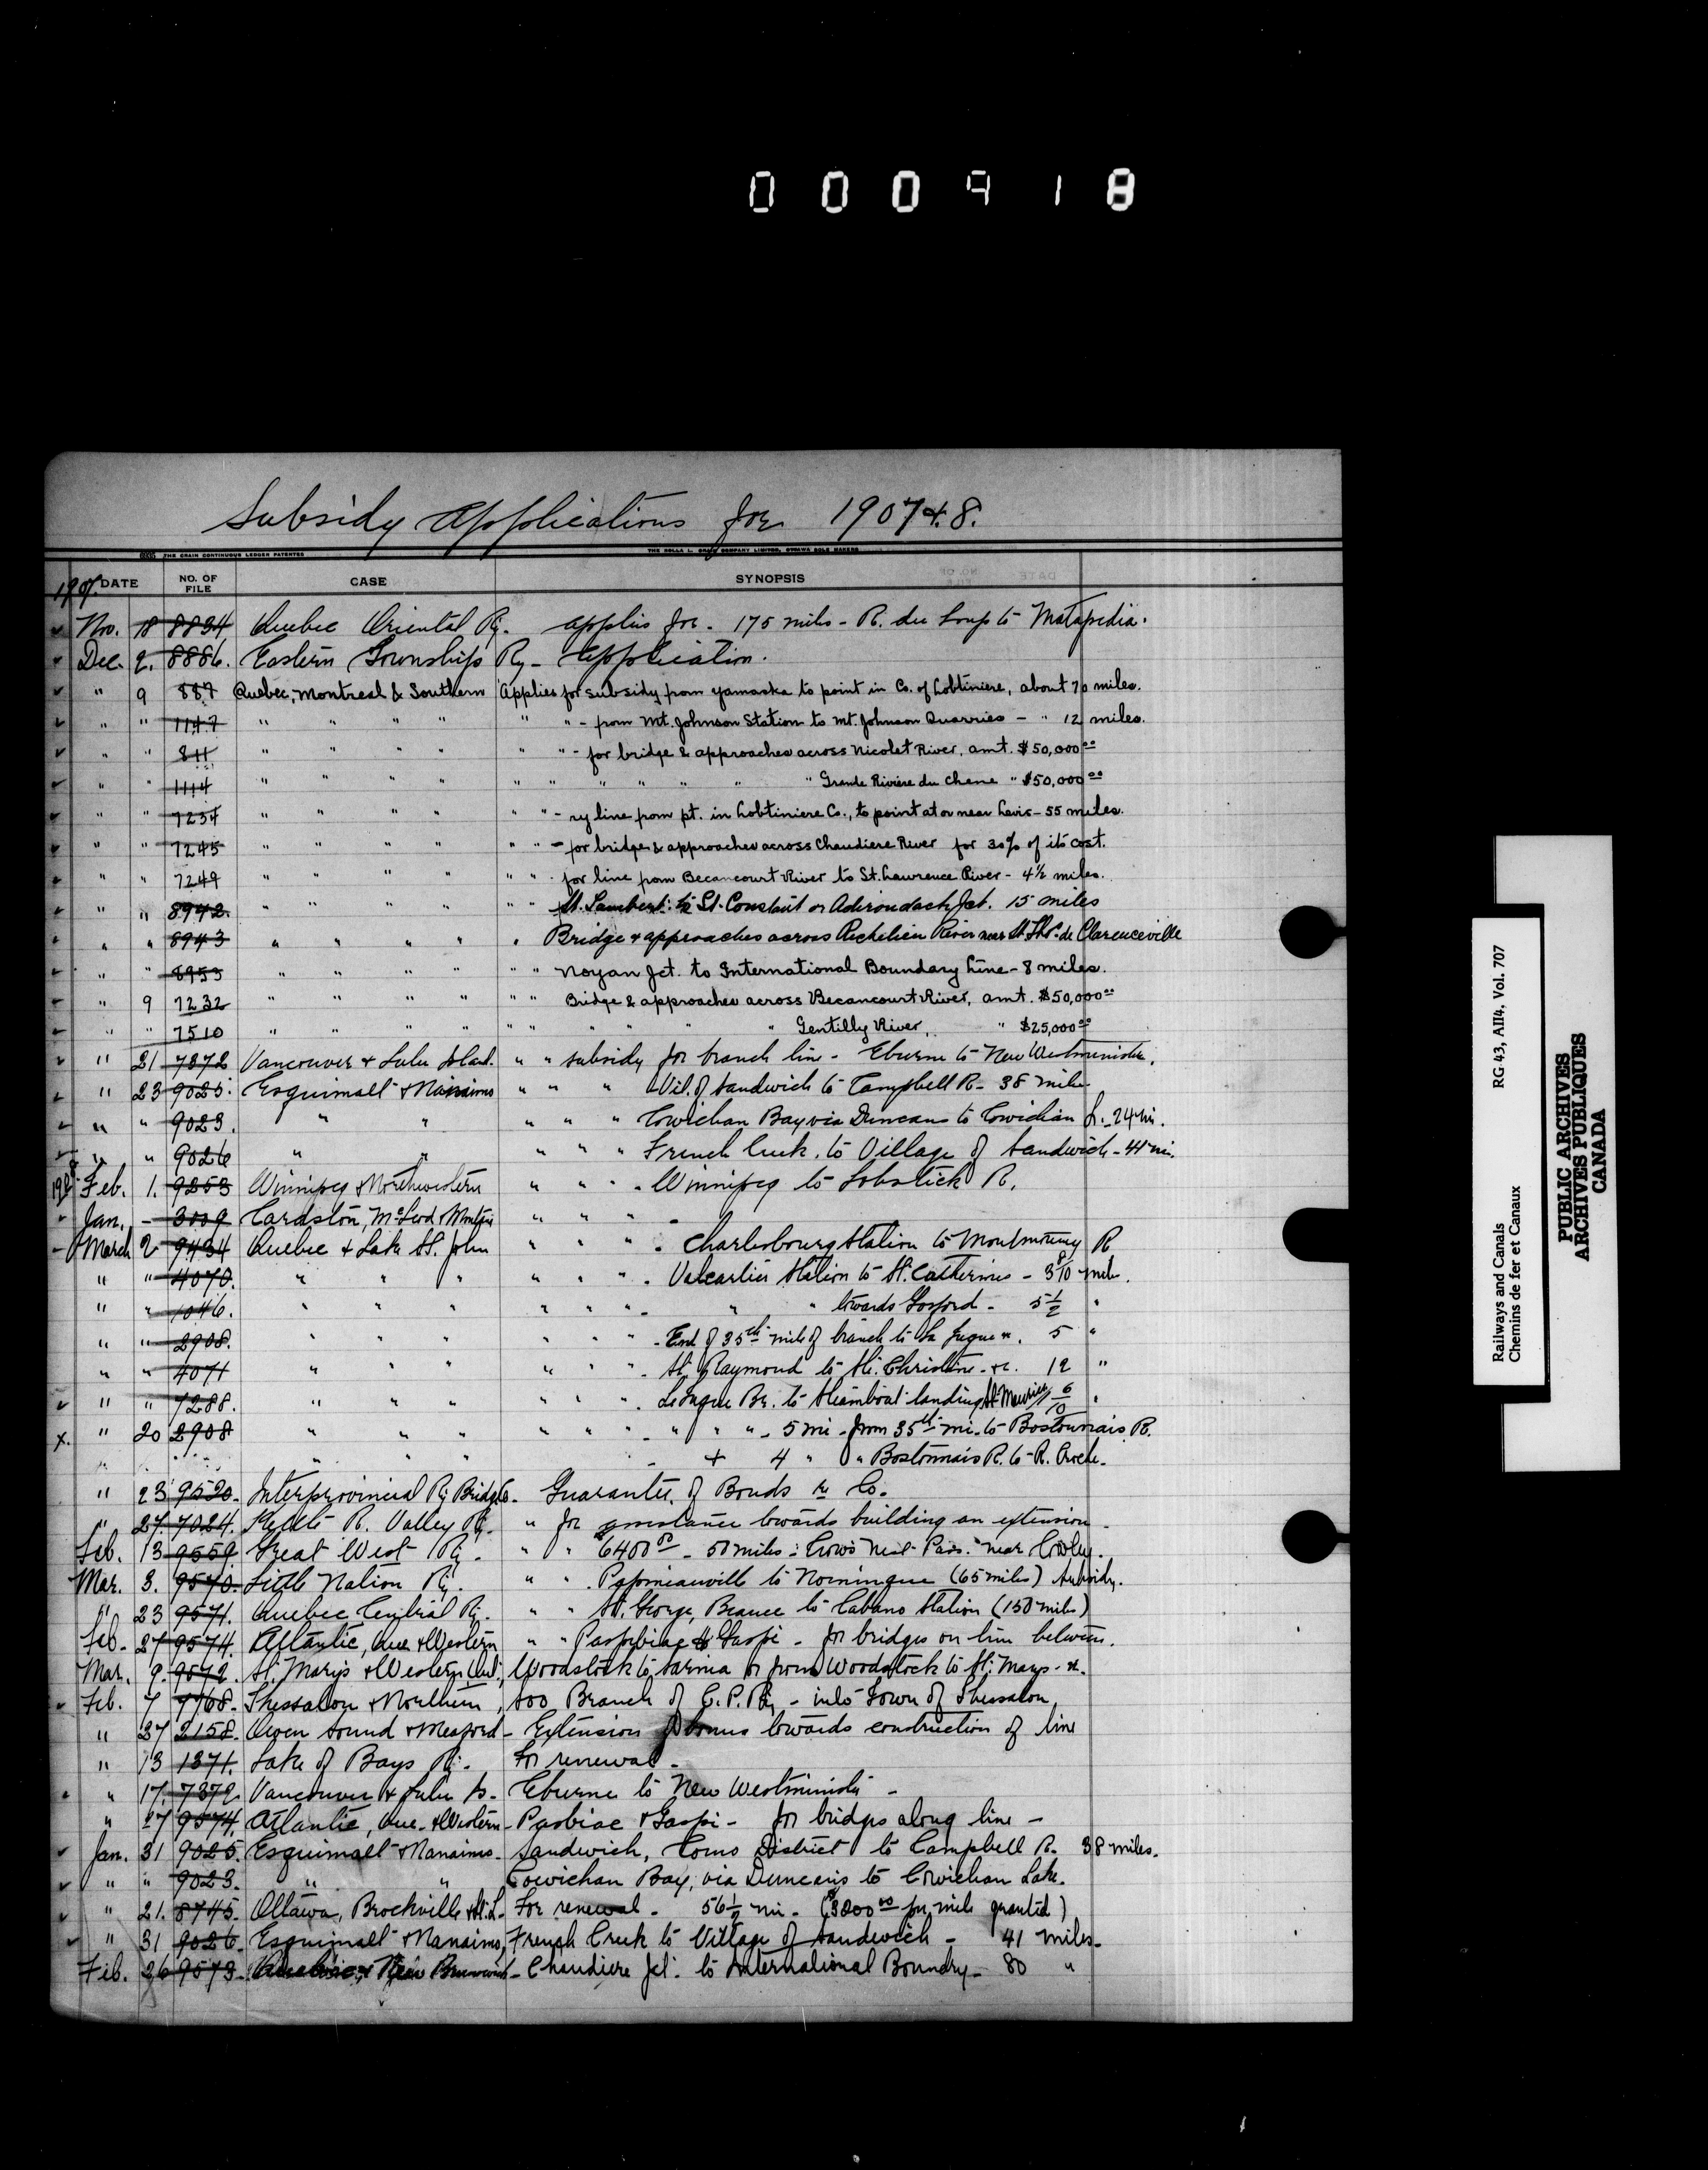 000918
Subsidy Applications for 1907 & 8.
THE CRAIN CONTINUOUS LEDGER PATENTED
1907. DATE NO. OF FILE CASE SYNOPSIS
Nov. 18 8834 Quebec Oriental Ry. applies for - 175 miles - R. du Loup to Matapedia.
Dec. 2. 8886. Eastern Townships Ry - Application.
" 9 887 Quebec, Montreal & Southern Applies for subsidy from Yamaska to point in Co. of Lobtiniere, about 70 miles.
" " 1147 " " " " " " - from Mt. Johnson Station to Mt. Johnson Quarries - " 12 miles.
" " 811 " " " " " " - for bridge & approaches across Nicolet River, amt. $50,000 00
" " 1114 " " " " " " " " " " " Grande Rivière du Chene " $50,000 00
" " 7234 " " " " " " - ry line from pt. in Lobtiniere Co., to point at or near Levis - 55 miles.
" " 7245 " " " " " " - for bridge & approaches across Chaudiere River for 30% of its cost.
" " 7249 " " " " " " - for line from Becancourt River to St. Lawrence River - 4½ miles.
" " 8942. " " " " " " St. Lambert to St. Constant or Adirondack Jct. 15 miles
" " 8943 " " " " " Bridge & approaches across Richelieu River near St. Ths. de Clarenceville
" " 8953 " " " " " " Noyan Jct. to International Boundary Line - 8 miles.
" 9 7232 " " " " " " Bridge & approaches across Becancourt River, amt. $50,000 00
" " 7510 " " " " " " " " " " Gentilly River, " $25,000 00
" 21 7372 Vancouver & Lulu Island. " " subsidy for branch line - Eburne to New Westminister.
" 23 9025. Esquimalt & Nanaimo " " " Vil. of Sandwich to Campbell R - 38 miles
" " 9023. " " " " " Cowichan Bay via Duncans to Cowichan L. - 24 mi.
" " 9026 " " " " " French Creek to Village of Sandwich - 41 mi.
1908 Feb. 1. 9253 Winnipeg & Northwestern " " " - Winnipeg to Lobstick R.
Jan. - 3009 Cardston, McLeod & Montana " " " -
March 2 9434 Quebec & Lake St. John " " " - Charlesbourg Station to Montmorency R
" " 4070. " " " " " " - Valcartier Station to St. Catherines - 3 8/10 miles.
" " 1046. " " " " " " - " " towards Gosford - 5 1/2 "
" " 2908. " " " " " " - End of 35th mile of branch to La Tuque &c. 5 "
" " 4071 " " " " " " - St. Raymond to Ste. Christine - &c. 12 "
" " 7288. " " " " " " - La Tuque Br. to Steamboat landing St. Maurice 6/10 "
x. " 20 2908 " " " " " " - " " " - 5 mi - from 35th mi. to Bostonnais R.
" " " - + 4 " " Bostonnais R. to R. Croche.
" 23 9520. Interprovincial Ry Bridge Co. Guarantee of Bonds re Co.
" 27. 7024. Kettle R. Valley Ry. " for assistance towards building an extension.
Feb. 13 9559. Great West Ry. " " 6400 00 - 50 miles - Crow's Nest Pass. near Cowley.
Mar. 3. 9570. Little Nation Ry. " " Papineauville to Nomingue (65 miles) Subsidy.
" 23 9571. Quebec Central Ry. " " St. George, Beauce to Cabano Station (150 miles)
Feb. 27 9574. Atlantic, Que & Western " " Paspebiac & Gaspé - for bridges on line between.
Mar. 9. 9572. St. Marys & Western Ont. Woodstock to Sarnia or from Woodstock to St. Marys - &c.
Feb. 7 Thessalon & Northern, Soo Branch of C.P.Ry - into Town of Thessalon.
" 27 2158. Owen Sound & Meaford - Extension of bonus towards construction of line
" 13 1371. Lake of Bays Ry. For renewal -
" 17. 7372. Vancouver & Lulu Is. Eburne to New Westminister -
" 27 9574. Atlantic, Que. & Western - Pasbiac & Gaspé - for bridges along line -
Jan. 31 9025. Esquimalt & Nanaimo - Sandwich, Comox District to Campbell R. 38 miles.
" " 9023. " " Cowichan Bay, via Duncans to Cowichan Lake.
" 21. 8745. Ottawa, Brockville & St. L. For renewal - 56 1/2 mi - ($3200 00 per mile granted)
" 31 9026. Esquimalt & Nanaimo, French Creek to Village of Sandwich - 41 miles.
Feb. 26 9573. Quebec & New Brunswick - Chaudiere Jct. to International Boundry - 80 "
Railways and Canals RG 43, AII4, Vol. 707
Chemins de fer et Canaux
PUBLIC ARCHIVES
ARCHIVES PUBLIQUES
CANADA